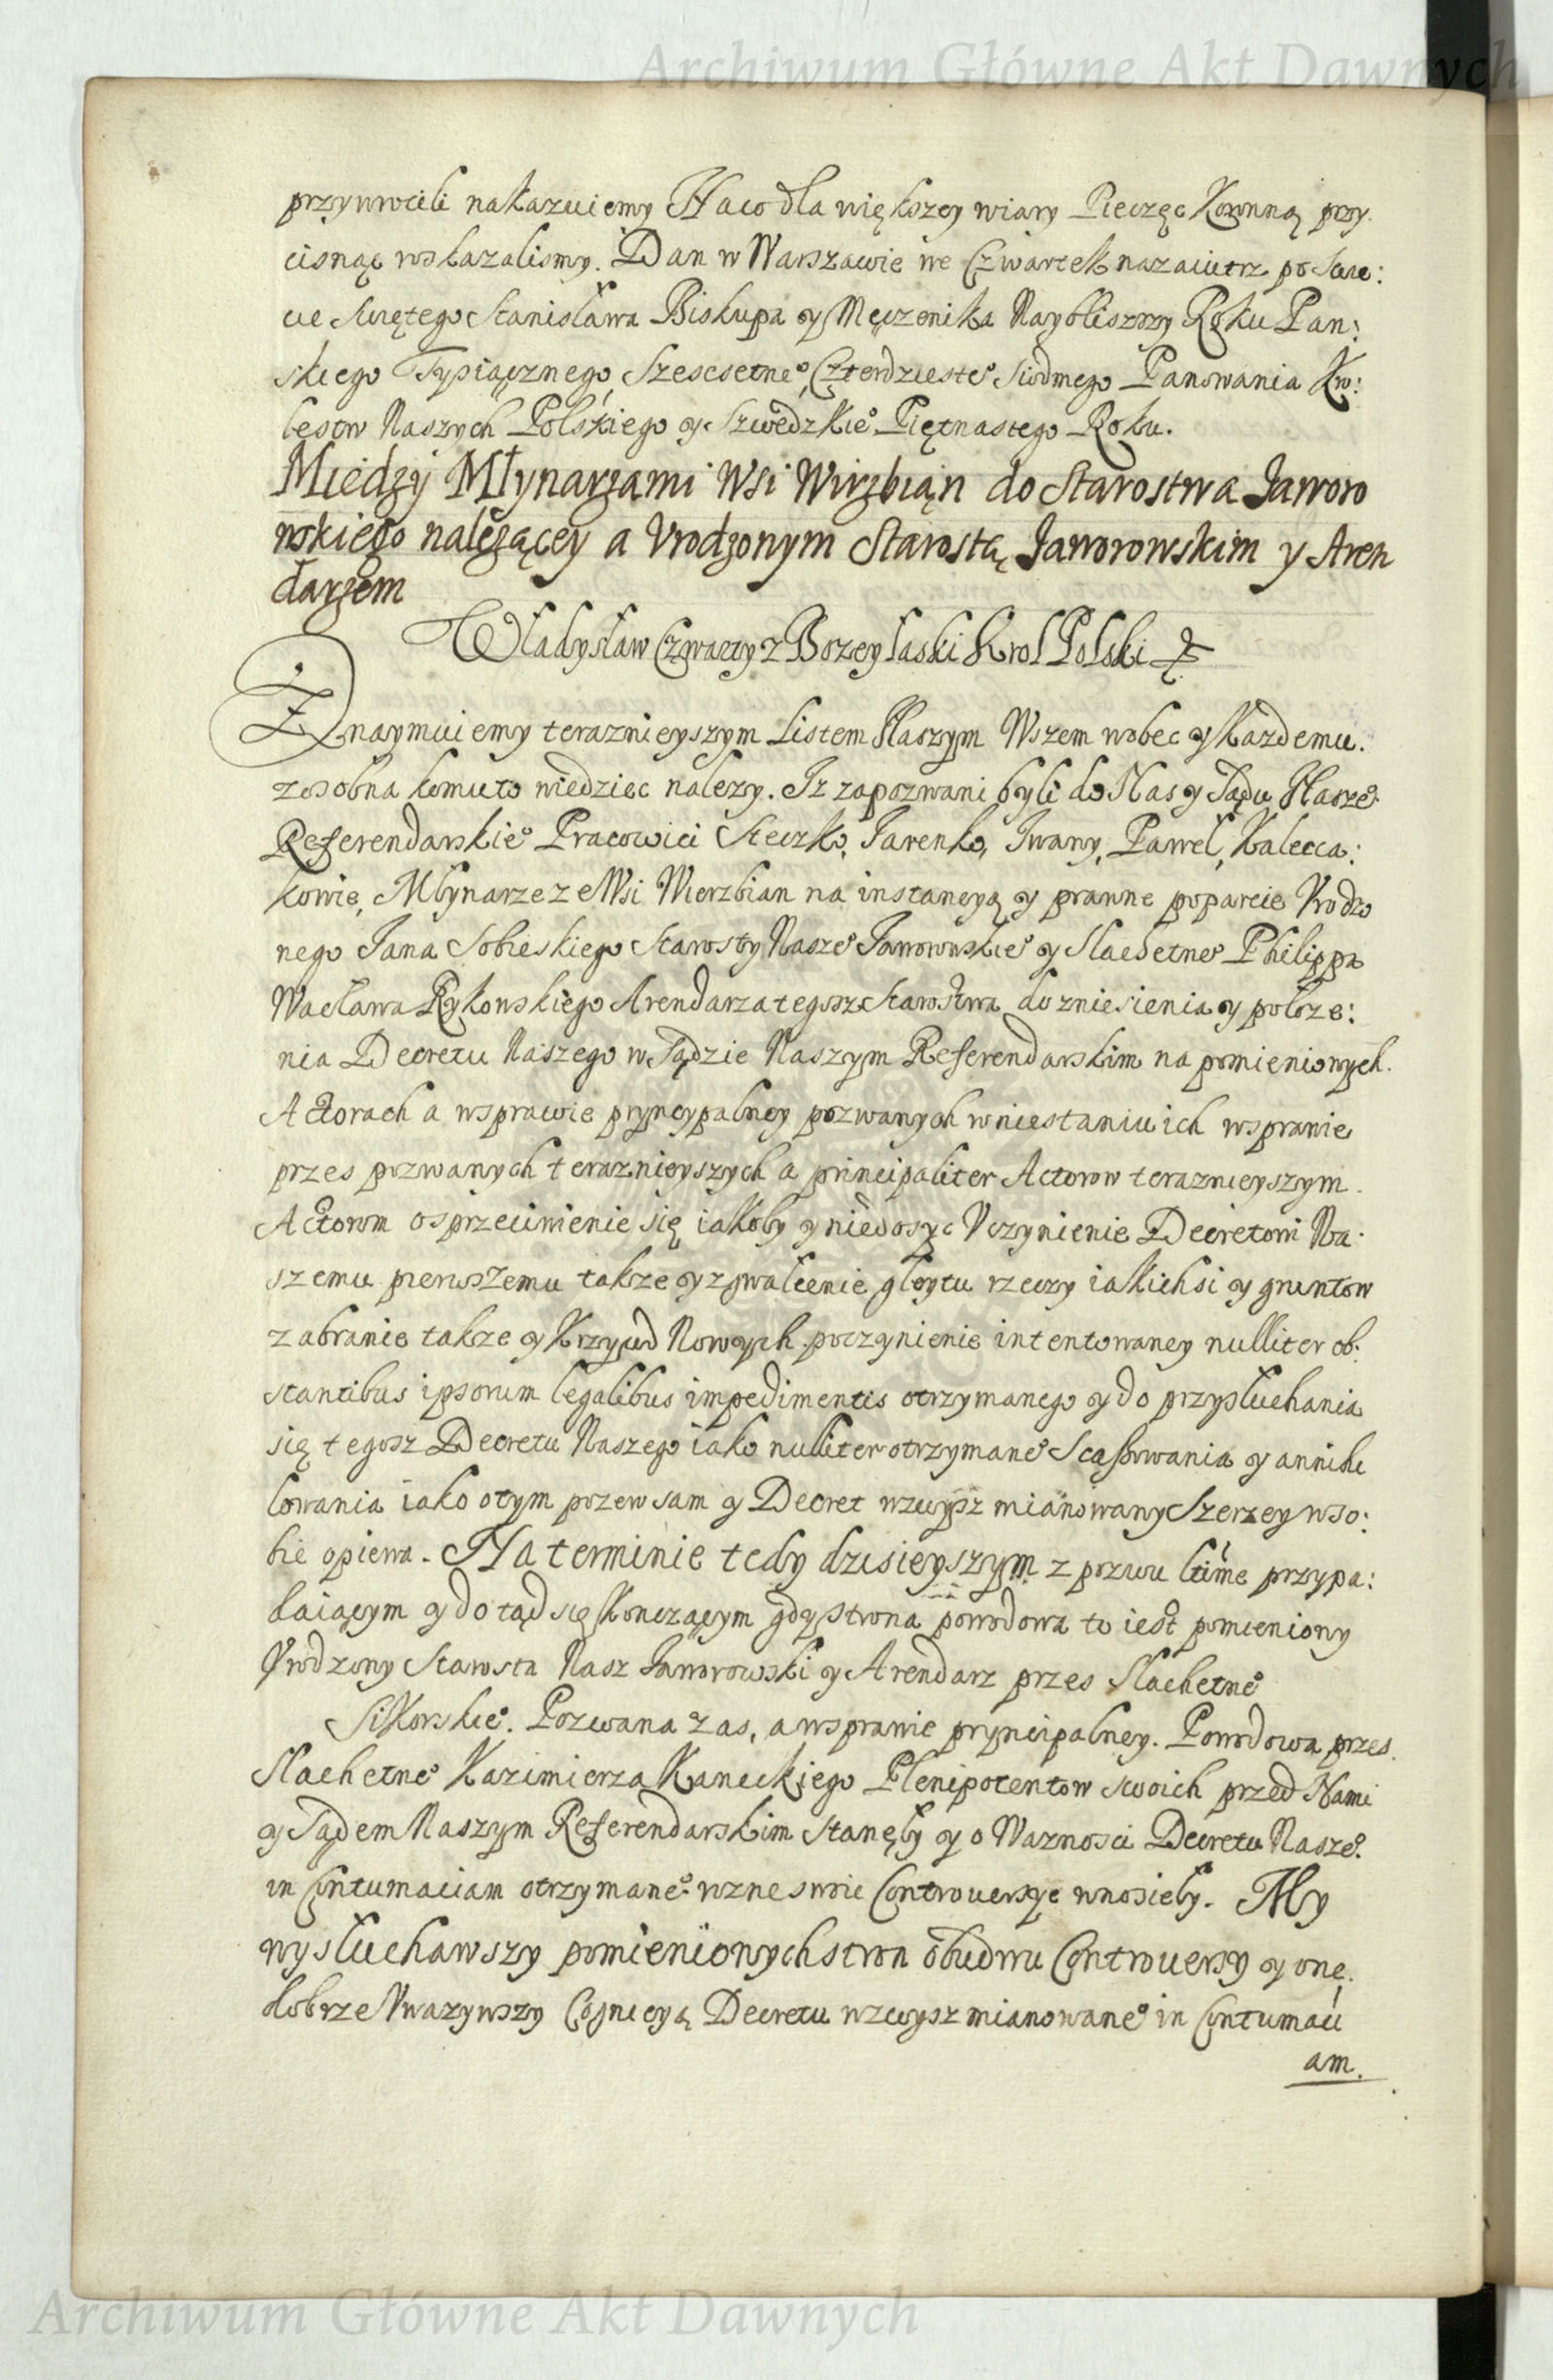 Archiwum Główne Akt Dawnych
przywrocili nakazuiemy Na co dla większey wiary Pieczęc Koronną przy.
cisnąc roskazalismy. Dan w Warszawie we Czwartek nazaiutrz po Swie:
cie Swiętego Stanisława Biskupa y Męczenika Naybliszszy Roku Pan:
skiego Tysiącznego Szescsetne° Czterdzieste° Siodmego Panowania Kro:
lestw Naszych Polskiego y Szwedzkie° Piętnastego Roku.
Między Młynarzami Wsi Wirzbiąn do Starostwa Jaworo
wskiego nalęzącey a Vrodzonym Starostą Jaworowskim y Aren
darzem
Władysław Czwarty z Bozey łaski Krol Polski &
Znaymuiemy teraznieyszym Listem Naszym Wszem wobec y Kazdemu.
zosobna komu to wiedziec nalezy. Iz zapozwani byli do Nas y Sądu Nasze°
Referendarskie° Pracowici Steczko, Jarenko, Iwany, Paweł, Kalecca:
kowie, Młynarze ze Wsi Wierzbian na instancyą y prawne poparcie Vrodzo
nego Jana Sobieskiego Starosty Nasze° Jaworowskie° y Slachetne° Philippa
Wacława Rykowskiego Arendarza tegosz Starostwa do zniesienia y poloze:
nia Decretu Naszego w Sądzie Naszym Referendarskim na pomienionych.
Actorach a wsprawie pryncypalney pozwanych w niestaniu ich wsprawie
przes pozwanych teraznieyszych a principaliter Actorow teraznieyszym.
Actorom o sprzeciwienie się iakoby y niedosyc Vczynienie Decretowi Na:
szemu pierwszemu takze y zgwałcenie gleytu rzeczy iakichsi y gruntow
zabranie takze y Krzywd Nowych poczynienie intentowaney nulliter ob:
stantibus ipsorum legalibus impedimentis otrzymanego y do przysłuchania
się tegosz Decretu Naszego iako nulliter otrzymane° Scassowania y annihi
lowania iako otym pozew sam y Decret wzwysz mianowany Szerzey wso:
bie opiewa. Na terminie tedy dzisieyszym z pozwu przypa:
daiącym y do tąd się Konczącym gdy Strona powodowa to iest pomieniony
Vrodzony Starosta Nasz Jaworowski y Arendarz przes Slachetne°
Sikorskie°. Pozwana zas, a wsprawie pryncipalney. Powodowa przes.
Slachetne° Kazimierza Kaneckiego Plenipotentow swoich przed Nami
y Sądem Naszym Referendarskim stanęły y o Waznosci Decretu Nasze°.
in Contumaciam otrzymane° rzne swoie Controversye wnosieły. My
wysłuchawszy pomienionych stron obudwu Controuersy y one.
dobrze Vwazywszy Cognicyą Decretu wzwysz mianowane° in Contumaci
am.
Archiwum Główne Akt Dawnych